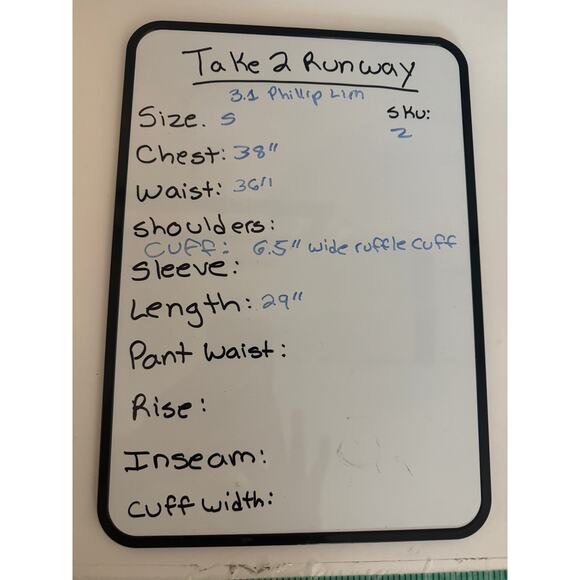 Take 2 Runway
3.1 Phillip Lim
Size. S
SKU:
2
Chest: 38"
Waist: 36"
Shoulders:
Cuff: 6.5" wide ruffle cuff
Sleeve:
Length: 29"
Pant Waist:
Rise:
Inseam:
Cuff width: